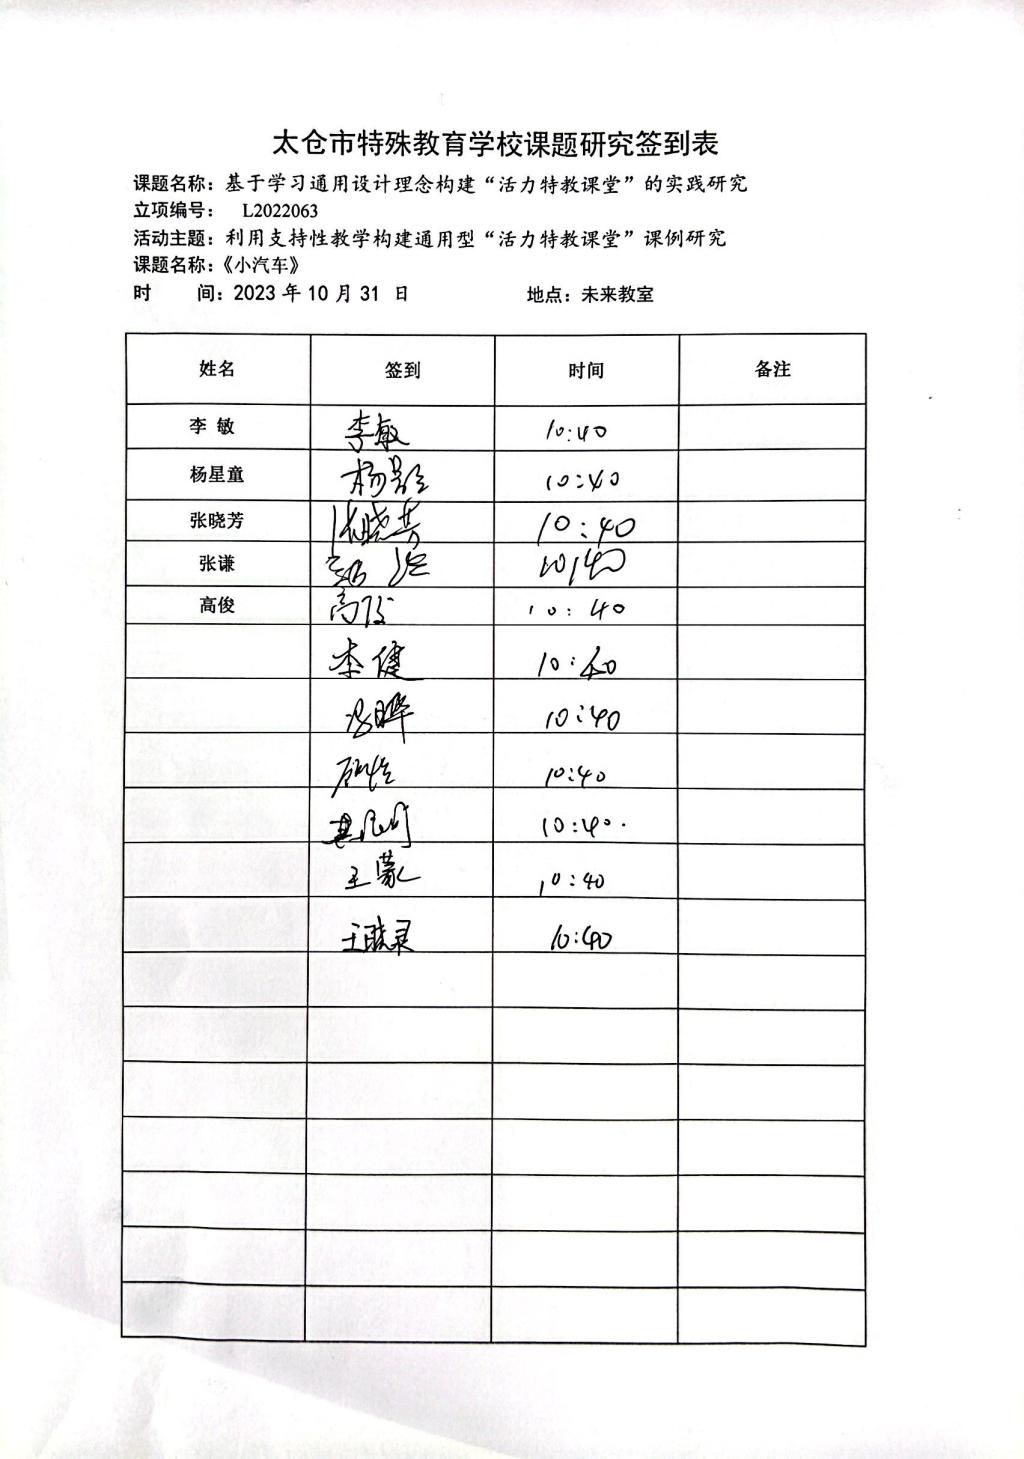 太仓市特殊教育学校课题研究签到表
课题名称：基于学习通用设计理念构建“活力特教课堂”的实践研究
立项编号： L2022063
活动主题：利用支持性教学构建通用型“活力特教课堂”课例研究
课题名称：《小汽车》
时 间：2023 年 10 月 31 日 地点：未来教室
姓名 签到 时间 备注
李 敏 李敏 10:40
杨星童 杨 10:40
张晓芳 张晓芳 10:40
张谦 10:40
高俊 高俊 10:40
李健 10:40
冯晔 10:40
10:40
10:40.
王蒙 10:40
王晓录 10:40